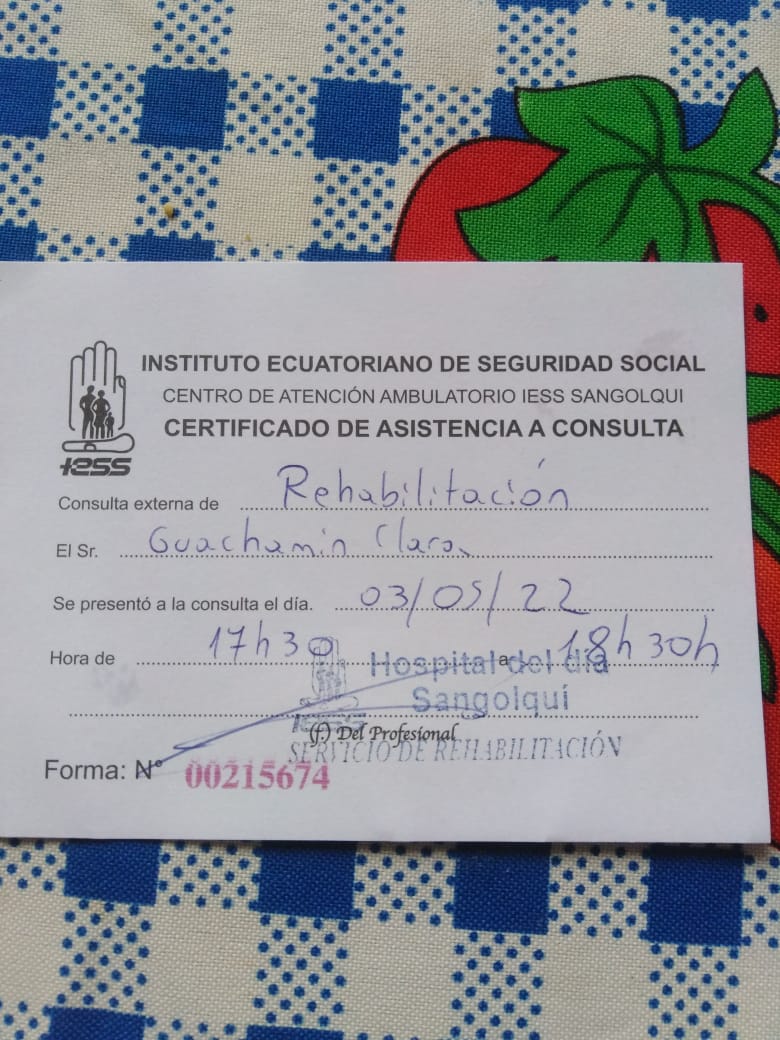 INSTITUTO ECUATORIANO DE SEGURIDAD SOCIAL
CENTRO DE ATENCIÓN AMBULATORIO IESS SANGOLQUI
CERTIFICADO DE ASISTENCIA A CONSULTA
IESS
Consulta externa de Rehabilitación
El Sr. Guachamin Clara
Se presentó a la consulta el día. 03/05/22
Hora de 17h30 a 18h30h
Hospital del día
Sangolquí
IESS
(f.) Del Profesional
SERVICIO DE REHABILITACIÓN
Forma: Nº 00215674